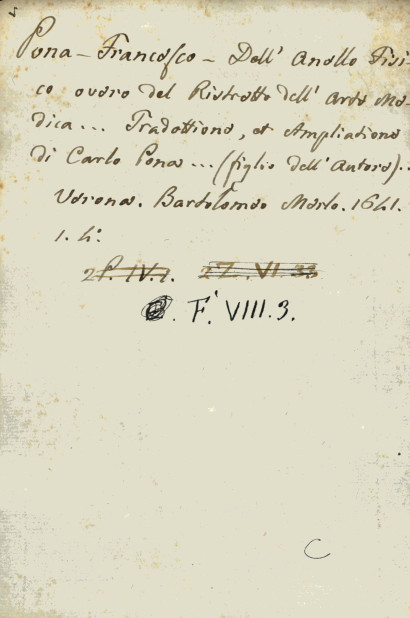 Pona - Francesco - Dell' Anello Fisi-
co overo del Ristretto dell' Arte Me-
dica... Tradottione, et Ampliatione
di Carlo Pona ... (figlio dell' Autore)..
Verona. Bartolomeo Merlo. 1641.
1. 4°
2P. IV. 1. 2Z. VI. 33
F. VIII. 3.
C